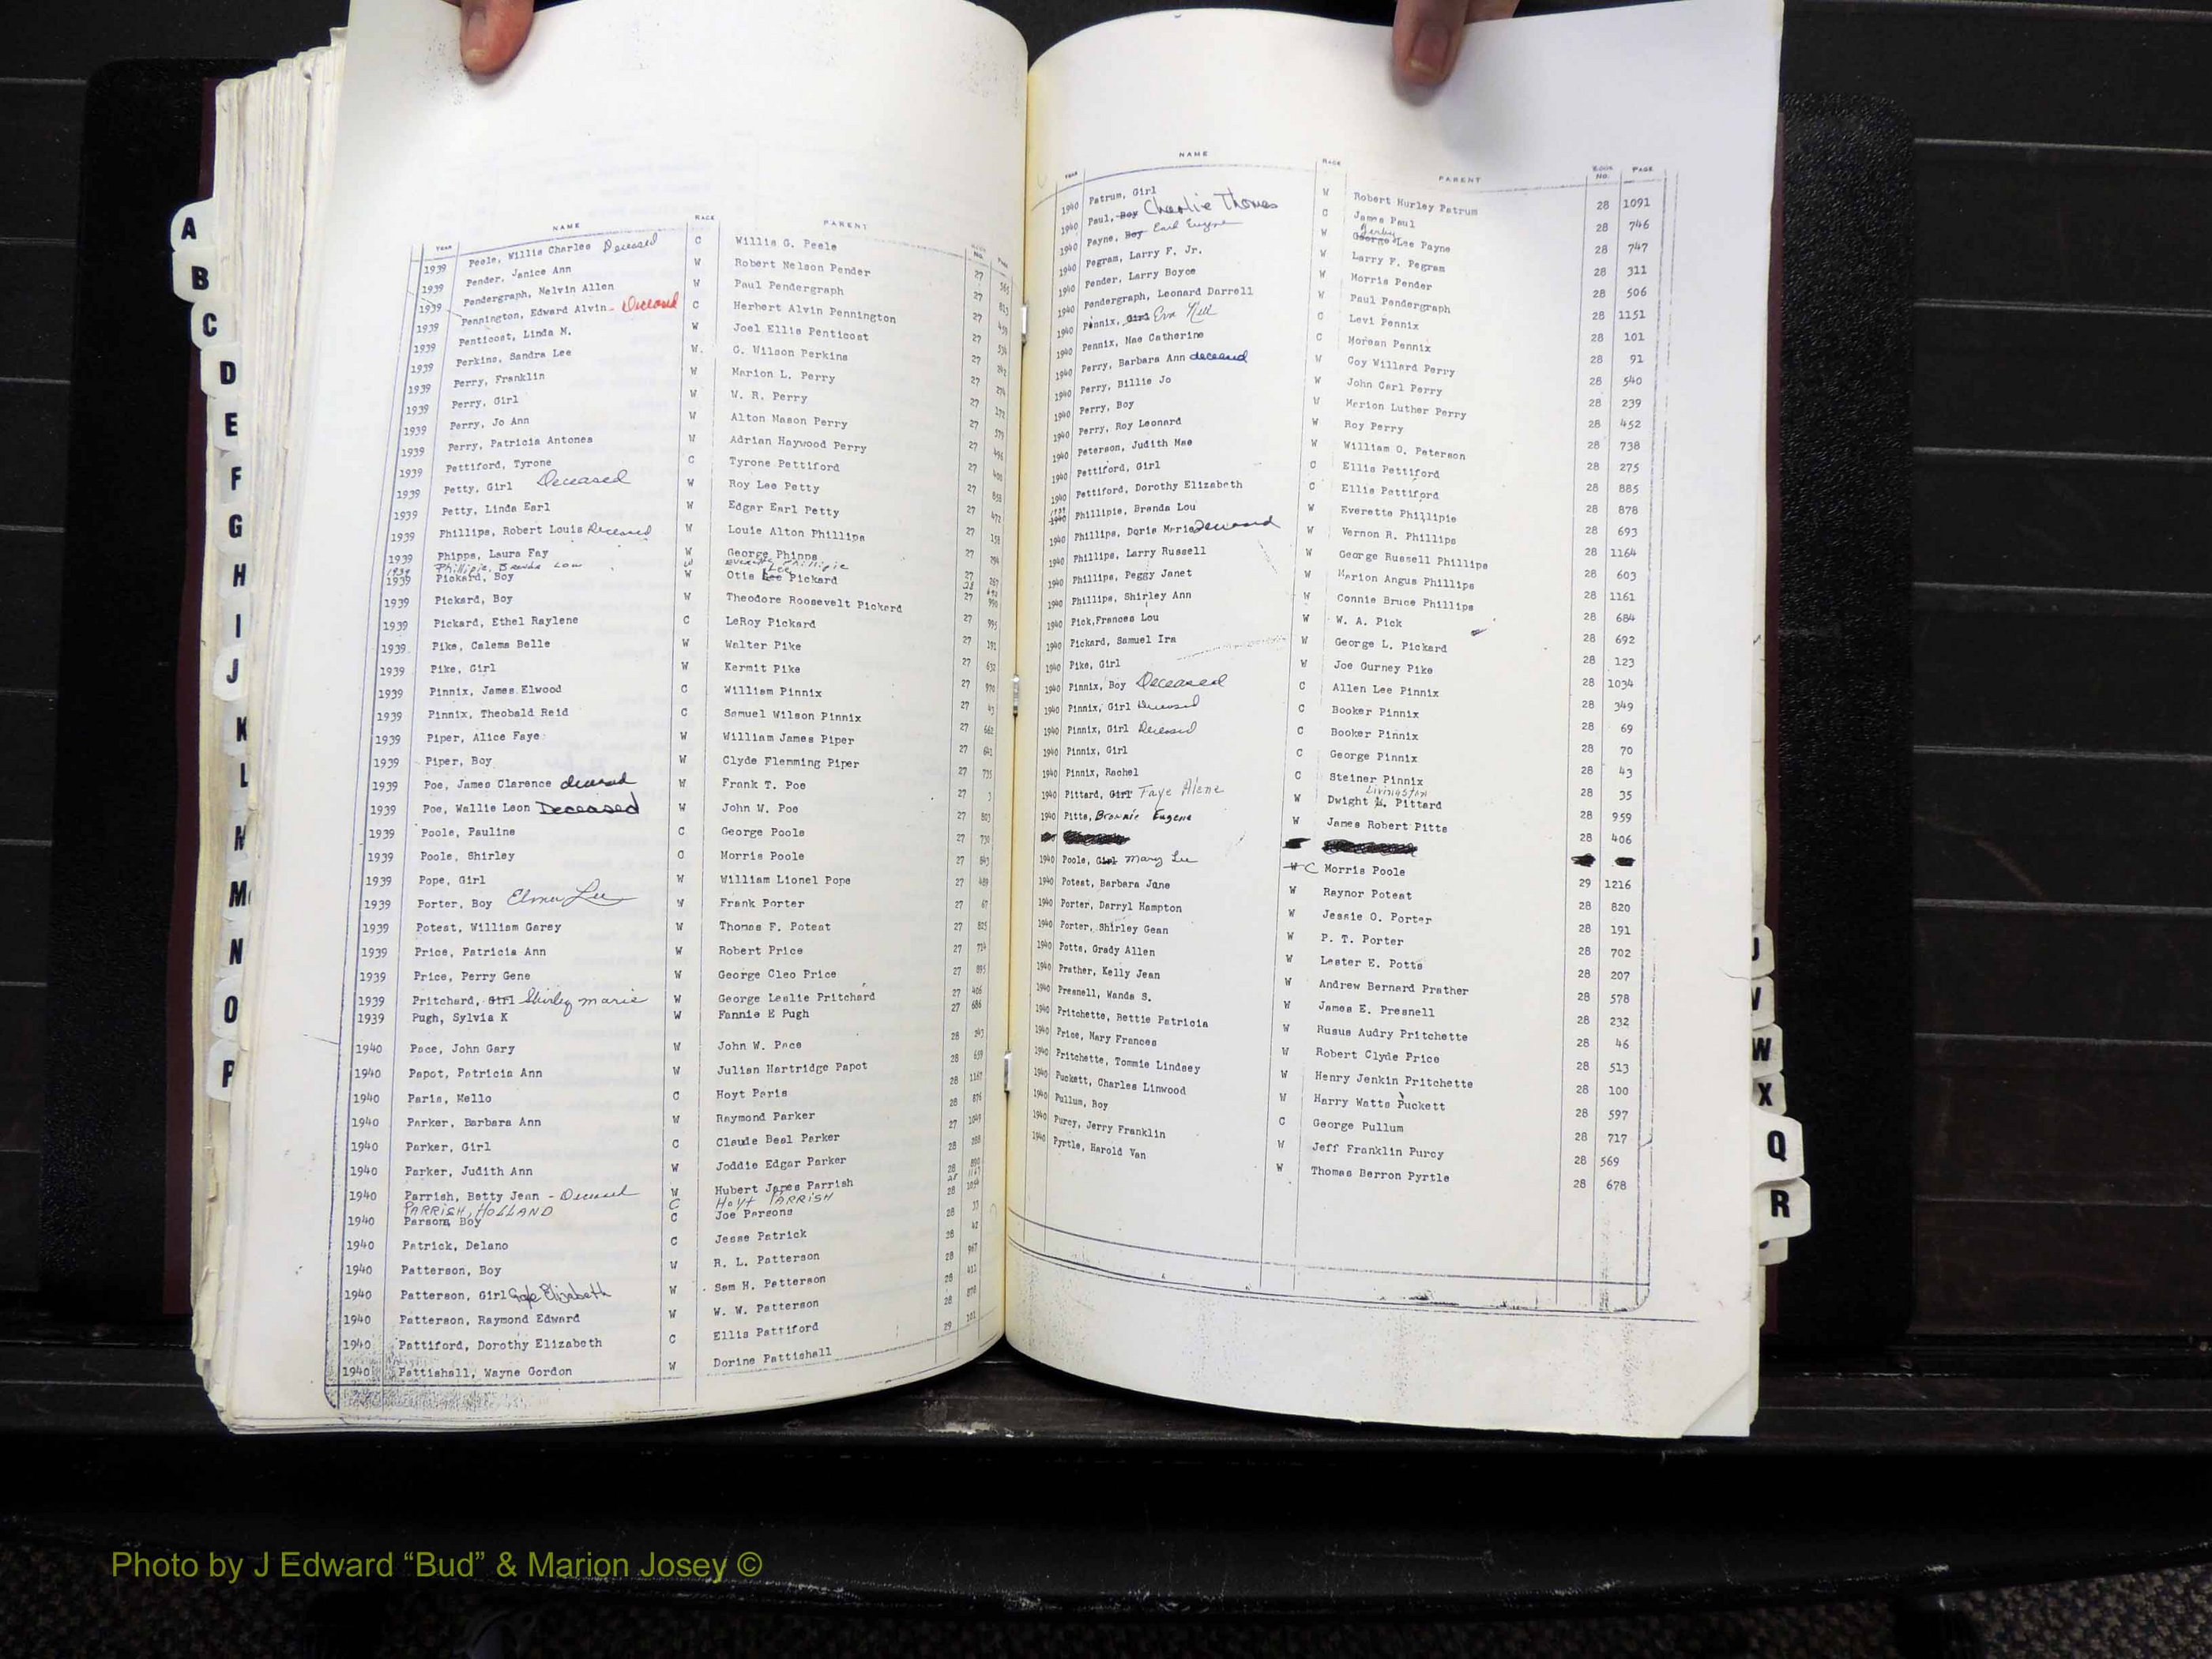 A
B
C
D
E
F
G
H
I
J
K
L
M
N
O
P
YEAR NAME RACE PARENT
1939 Peele, Willis Charles Deceased C Willis G. Peele 27 565
1939 Pender, Janice Ann W Robert Nelson Pender 27 823
1939 Pendergraph, Melvin Allen W Paul Pendergraph 27 459
1939 Pennington, Edward Alvin Deceased C Herbert Alvin Pennington 27 534
1939 Penticost, Linda M. W Joel Ellis Penticost 27
1939 Perkins, Sandra Lee W. O. Wilson Perkins 27
1939 Perry, Franklin W Marion L. Perry 27 172
1939 Perry, Girl W W. R. Perry 27 579
1939 Perry, Jo Ann W Alton Mason Perry 27
1939 Perry, Patricia Antonea W Adrian Haywood Perry 27
1939 Pettiford, Tyrone C Tyrone Pettiford 27 858
1939 Petty, Girl Deceased W Roy Lee Petty 27 472
1939 Petty, Linda Earl W Edgar Earl Petty 27 158
1939 Phillips, Robert Louis Deceased W Louie Alton Phillips 27
1939 Phipps, Laura Fay W George Phipps 27 267
1939 Phillipie, Brenda Lou W Everette Phillipie 28
1939 Pickard, Boy W Otis Lee Pickard 27 990
1939 Pickard, Boy W Theodore Roosevelt Pickard 27 995
1939 Pickard, Ethel Raylene C LeRoy Pickard 27 191
1939 Pike, Calema Belle W Walter Pike 27 632
1939 Pike, Girl W Kermit Pike 27 970
1939 Pinnix, James Elwood C William Pinnix 27 43
1939 Pinnix, Theobald Reid C Samuel Wilson Pinnix 27 662
1939 Piper, Alice Faye W William James Piper 27 641
1939 Piper, Boy W Clyde Flemming Piper 27 735
1939 Poe, James Clarence deceased W Frank T. Poe 27 3
1939 Poe, Wallie Leon Deceased W John W. Poe 27 803
1939 Poole, Pauline C George Poole 27 730
1939 Poole, Shirley C Morris Poole 27 843
1939 Pope, Girl W William Lionel Pope 27 489
1939 Porter, Boy Elmer Lee W Frank Porter 27 67
1939 Poteat, William Garey W Thomas F. Poteat 27 825
1939 Price, Patricia Ann W Robert Price 27 734
1939 Price, Perry Gene W George Cleo Price 27 895
1939 Pritchard, Girl Shirley Marie W George Leslie Pritchard 27 406
1939 Pugh, Sylvia K W Fannie E Pugh 27 686
1940 Pace, John Gary W John W. Pace 28 243
1940 Papot, Patricia Ann W Julian Hartridge Papot 28 659
1940 Paris, Mello C Hoyt Paris 28 1167
1940 Parker, Barbara Ann W Raymond Parker 28 876
1940 Parker, Girl C Claude Beal Parker 27 1049
1940 Parker, Judith Ann W Joddie Edgar Parker 28 288
1940 Parrish, Betty Jean - Deceased W Hubert James Parrish 28
PARRISH, HOLLAND C HOYT PARRISH 28 1167
1940 Parsons, Boy C Joe Parsons 28
1940 Patrick, Delano C Jesse Patrick 28 33
1940 Patterson, Boy W R. L. Patterson 28 42
1940 Patterson, Girl Gale Elizabeth W Sam H. Patterson 28 967
1940 Patterson, Raymond Edward W W. W. Patterson 28 411
1940 Pattiford, Dorothy Elizabeth C Ellis Pattiford 28 878
1940 Pattishall, Wayne Gordon W Dorine Pattishall 29 101
YEAR NAME RACE PARENT BOOK NO. PAGE
1940 Patrum, Girl W Robert Hurley Patrum 28 1091
1940 Paul, Boy Charlie Thomas C James Paul 28 746
1940 Payne, Boy Earl Eugene W George Lee Payne 28 747
1940 Pegram, Larry F. Jr. W Larry F. Pegram 28 311
1940 Pender, Larry Boyce W Morris Pender 28 506
1940 Pendergraph, Leonard Darrell W Paul Pendergraph 28 1151
1940 Pinnix, Girl Eva C Levi Pennix 28 101
1940 Pennix, Mae Catherine C Morean Pennix 28 91
1940 Perry, Barbara Ann deceased W Coy Willard Perry 28 540
1940 Perry, Billie Jo W John Carl Perry 28 239
1940 Perry, Boy W Marion Luther Perry 28 452
1940 Perry, Roy Leonard W Roy Perry 28 738
1940 Peterson, Judith Mae W William O. Peterson 28 275
1940 Pettiford, Girl C Ellis Pettiford 28 885
1940 Pettiford, Dorothy Elizabeth C Ellis Pettiford 28 878
1939 1940 Phillipie, Brenda Lou W Everette Phillipie 28 693
1940 Phillips, Doris Marie Deceased W Vernon R. Phillips 28 1164
1940 Phillips, Larry Russell W George Russell Phillips 28 603
1940 Phillips, Peggy Janet W Marion Angus Phillips 28 1161
1940 Phillips, Shirley Ann W Connie Bruce Phillips 28 684
1940 Pick, Frances Lou W W. A. Pick 28 692
1940 Pickard, Samuel Ira W George L. Pickard 28 123
1940 Pike, Girl W Joe Gurney Pike 28 1034
1940 Pinnix, Boy Deceased C Allen Lee Pinnix 28 349
1940 Pinnix, Girl Deceased C Booker Pinnix 28 69
1940 Pinnix, Girl Deceased C Booker Pinnix 28 70
1940 Pinnix, Girl C George Pinnix 28 43
1940 Pinnix, Rachel C Steiner Pinnix 28 35
1940 Pittard, Girl Faye Alene W Dwight Livingston Pittard 28 959
1940 Pitts, Bronnie Eugene W James Robert Pitts 28 406
1940 Poole, Girl Mary Lee W C Morris Poole 29 1216
1940 Poteat, Barbara Jane W Raynor Poteat 28 820
1940 Porter, Darryl Hampton W Jessie O. Porter 28 191
1940 Porter, Shirley Gean W P. T. Porter 28 702
1940 Potts, Grady Allen W Lester E. Potts 28 207
1940 Prather, Kelly Jean W Andrew Bernard Prather 28 578
1940 Presnell, Wanda S. W James E. Presnell 28 232
1940 Pritchette, Bettie Patricia W Rusus Audry Pritchette 28 46
1940 Price, Mary Frances W Robert Clyde Price 28 513
1940 Pritchette, Tommie Lindsey W Henry Jenkin Pritchette 28 100
1940 Puckett, Charles Linwood W Harry Watts Puckett 28 597
1940 Pullum, Boy C George Pullum 28 717
1940 Purcy, Jerry Franklin W Jeff Franklin Purcy 28 569
1940 Pyrtle, Harold Van W Thomas Berron Pyrtle 28 678
W
X
Q
R
Photo by J Edward “Bud” & Marion Josey ©